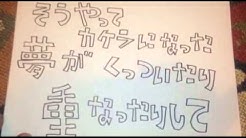 そうやって
カケラになった
夢が くっついたり
重なったりして